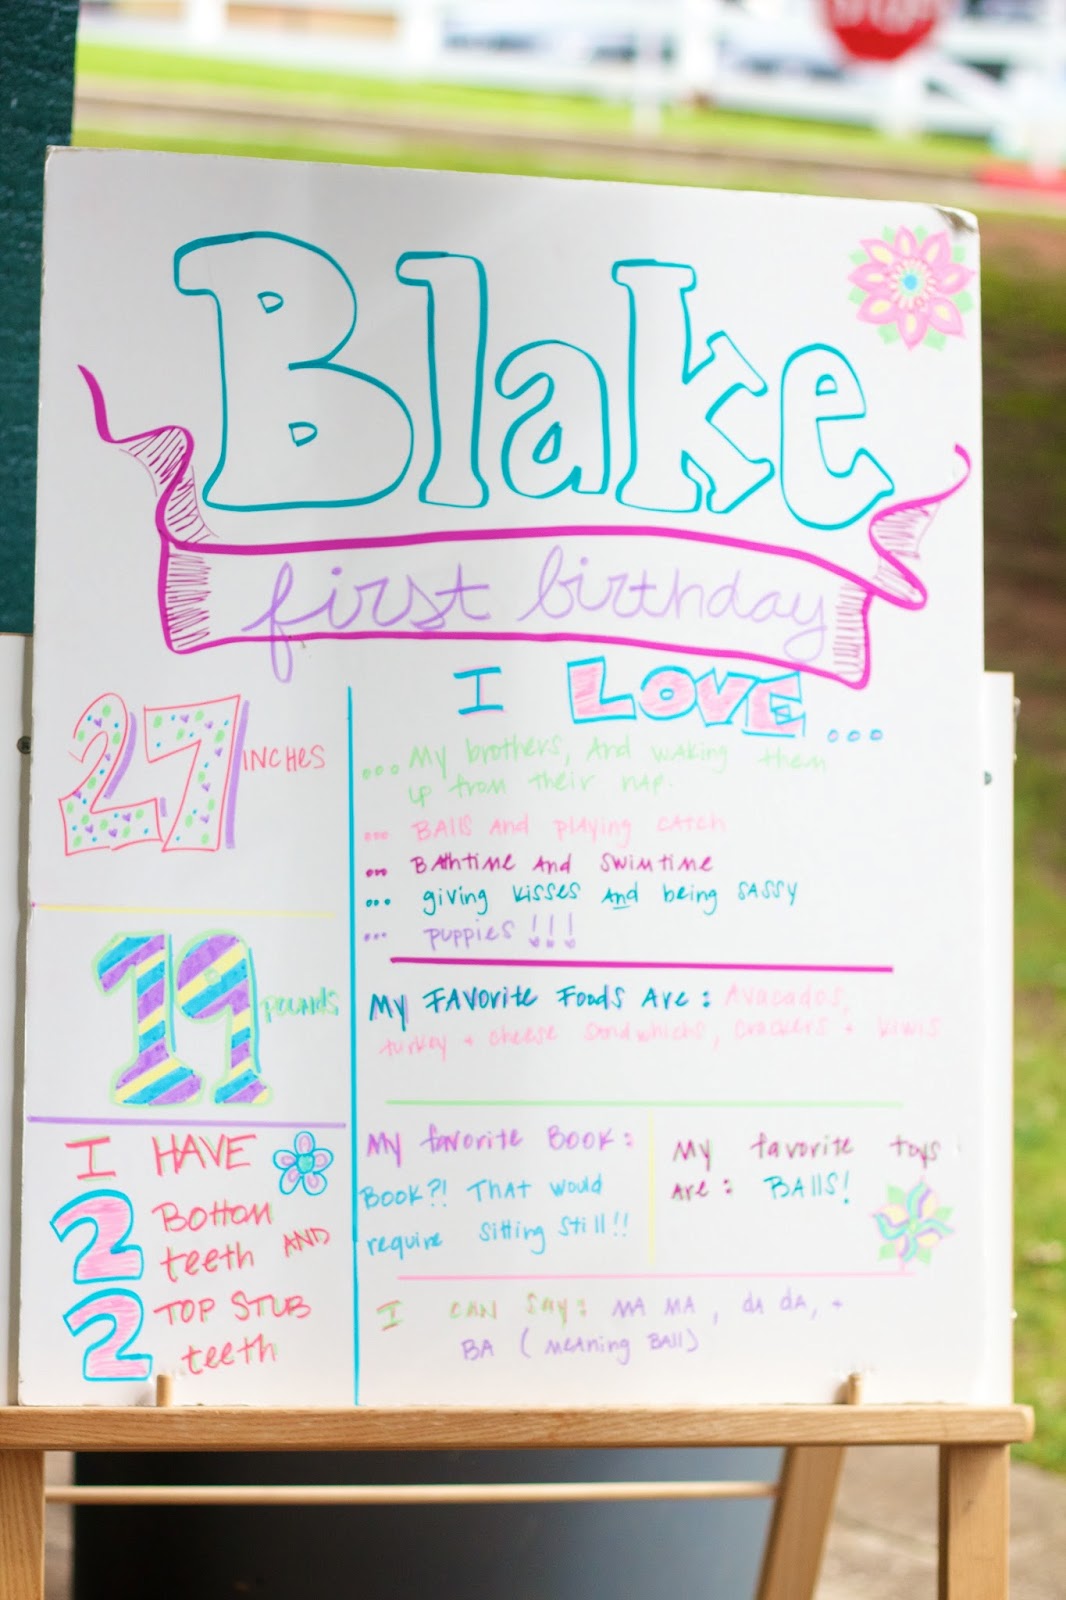 Blake
first birthday
27 INCHES
19 POUNDS
I HAVE
2 Bottom
teeth AND
2 TOP STUB
teeth
I LOVE...
...My brothers, And waking them
up from their nap.
... BAlls And playing catch
... BAthtime And Swimtime
... giving kisses And being SASSy
... puppies !!!
My FAVorite Foods Are: Avacados,
turkey + cheese sandwichs, crackers + kiwis
My favorite BOOK:
BOOK?! THAT would
require sitting still!!
My favorite toys
Are: BALLS!
I CAN Say: MA MA, da da, +
BA (meaning BAll)